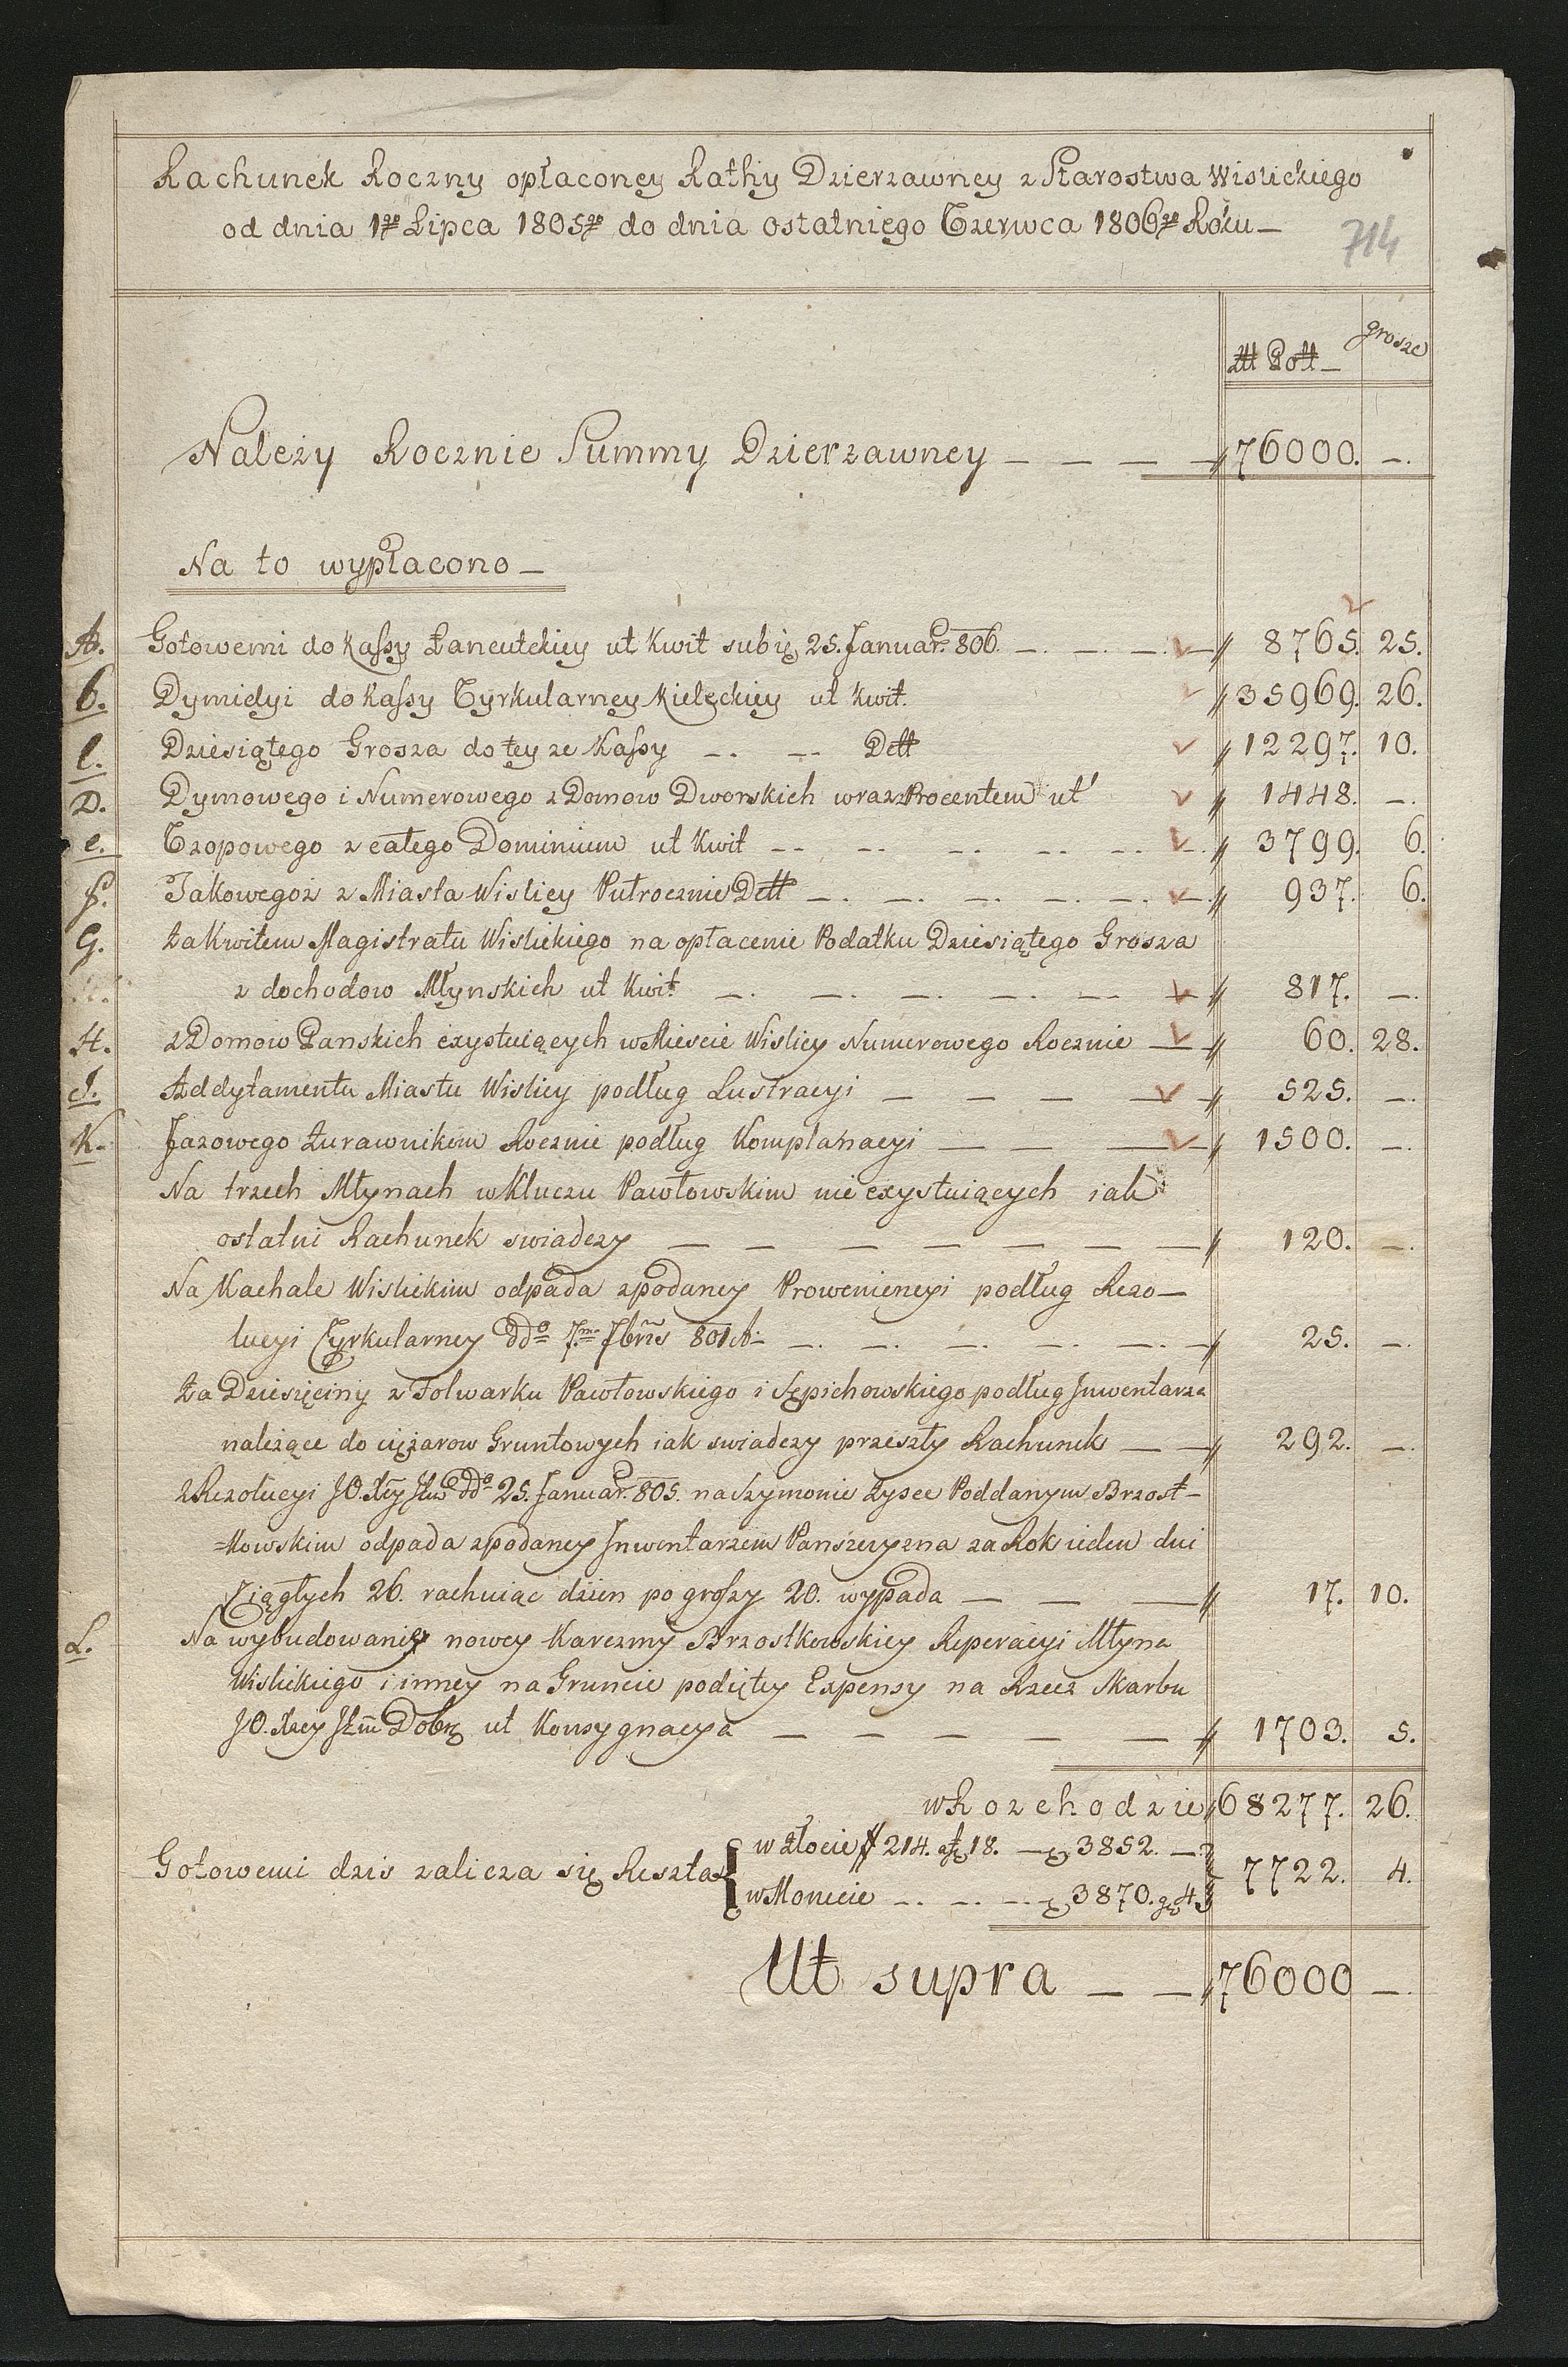 Rachunek Roczny opłaconey Rathy Dzierzawney z Starostwa Wislickiego
od dnia 1go Lipca 1805go do dnia ostatniego Czerwca 1806go Roku —
714
złł Poll — grosze
Należy Rocznie Summy Dzierzawney — — — — 76000. —.
Na to wypłacono —
A. Gotowemi do Kassy Łancutckiey ut Kwit sub 25. Januar. 806. —. —. —. 8765. 25.
b. Dymidyi do Kassy Cyrkularney Kieleckiey ut Kwit. 35969. 26.
C. Dziesiątego Grosza do tey ze Kassy —. — Dett 12297. 10.
D. Dymowego i Numerowego z Domow Dworskich wraz z Procentem ut 1448. —.
e. Czopowego z całego Dominium ut Kwit — — — — — 3799. 6.
f. Takowegoż z Miasta Wislicy Pułrocznie Dett —. —. —. —. —. 937. 6.
G. Za Kwitem Magistratu Wislickiego na opłacenie Podatku Dziesiątego Grosza
z dochodow Młynskich ut Kwit. —. —. —. —. — 817. —.
H. z Domow Panskich exystuiących w Miescie Wislicy Numerowego Rocznie — 60. 28.
I. Addytamentu Miastu Wislicy podług Lustracyi — — — — 525. —.
K. Jazowego Żurawnikom Rocznie podług Komplanacyi — — — 1500. —.
Na trzech Młynach w Kluczu Pawłowskim nie exystuiących iak
ostatni Rachunek swiadczy — — — — — — — 120. —.
Na Kachale Wislickim odpada z podaney Prowenieneyi podług Rezo—
lucyi Cyrkularney ddo 7ma 7bris 801 A. —. —. —. —. —. — 25. —.
Za Dziesięciny z Folwarku Pawłowskiego i Sępichowskiego podług Inwentarza
należące do ciężarow Gruntowych iak swiadczy przeszły Rachunek — — 292. —.
z Rezolucyi JO. Xcy ddo 25. Januar. 805. na Szymonie Łysce Poddanym Brzost—
=kowskim odpada z podaney Inwentarzem Panszczyzna za Rok ieden dni
Ciągłych 26. rachuiąc dzien po groszy 20. wypada — — — 17. 10.
L. Na wybudowanie nowey Karczmy Brzostkowskiey Reperacyi Młyna
Wislickiego i inney na Gruncie podiętey Expensy na Rzecz Skarbu
JO. Xcey Dobr ut Konsygnacya — — — — — 1703. 5.
w Rozchodzie 68277. 26.
w Złocie # 214. a 18. — 3852. —
Gotowemi dzis zalicza się Reszta 7722. 4.
w Monecie —. —. — 3870. gr 4
Ut supra — — 76000 —.